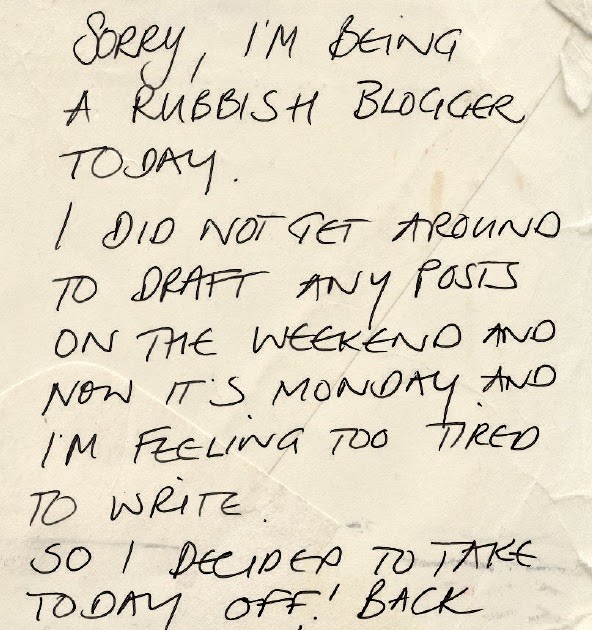 SORRY, I'M BEING
A RUBBISH BLOGGER
TODAY.
I DID NOT GET AROUND
TO DRAFT ANY POSTS
ON THE WEEKEND AND
NOW IT'S MONDAY AND
I'M FEELING TOO TIRED
TO WRITE.
SO I DECIDED TO TAKE
TODAY OFF! BACK